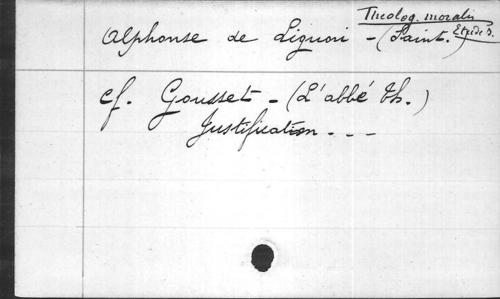 Theolog. moralis
Alphonse de Liguori - (Saint.)
cf. Gousset - (L'abbé Th.)
Justification - - -